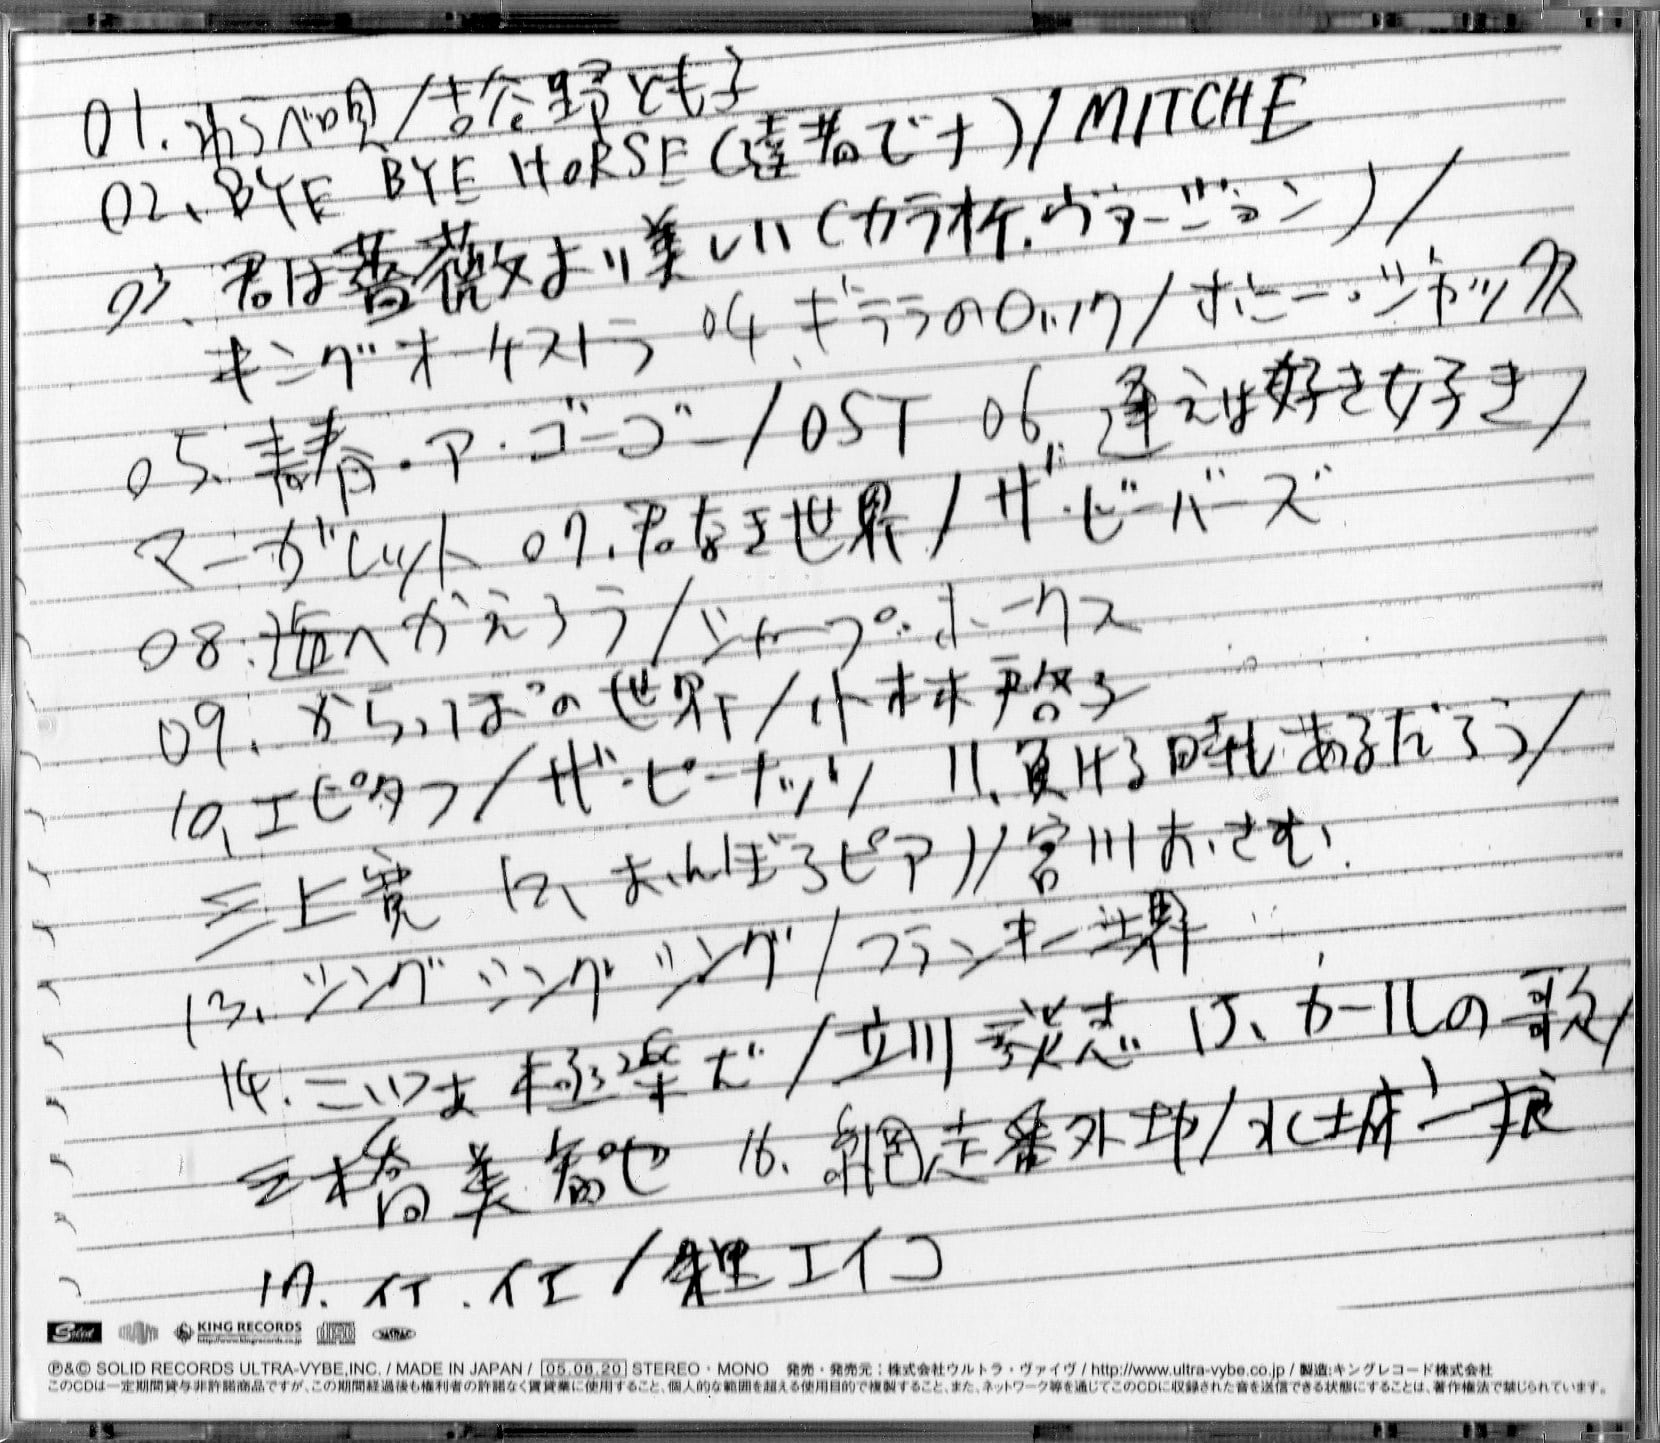 01. わらべ唄/吉谷野とも子
02、BYE BYE HORSE(達者でナ)/MITCHE
03、君は薔薇より美しい(カラオケ・ヴァージョン)/
キングオーケストラ 04、ギララのロック/ボニー・ジャックス
05、青春・ア・ゴーゴー/OST 06、逢えば好き好き/
マーガレット 07、君なき世界/ザ・ビーバーズ
08、海へかえろう/シャープ・ホークス
09、からっぽの世界/小林啓子
10、エピタフ/ザ・ピーナッツ 11、負ける時もあるだろう/
三上寛 12、おんぼろピアノ/宮川おさむ
13、シング シング シング/フランキー堺
14、こいつは極楽だ/立川談志 15、カールの歌/
三橋美智也 16、網走番外地/水城一狼
17、イエ・イエ/朱里エイコ
Solid KING RECORDS JASRAC
http://www.kingrecords.co.jp
Ⓟ&© SOLID RECORDS ULTRA-VYBE,INC. / MADE IN JAPAN / 05.08.20 STEREO・MONO 発売・発売元:株式会社ウルトラ・ヴァイヴ / http://www.ultra-vybe.co.jp / 製造:キングレコード株式会社
このCDは一定期間貸与非許諾商品ですが、この期間経過後も権利者の許諾なく賃貸業に使用すること、個人的な範囲を超える使用目的で複製すること、また、ネットワーク等を通じてこのCDに収録された音を送信できる状態にすることは、著作権法で禁じられています。